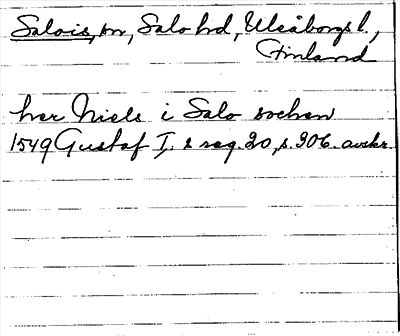 Salois, sn, Salo hd, Uleåborgs l.,
Finland
her Niels i Salo sochen
1549 Gustaf I:s reg. 20, s. 306. avskr.